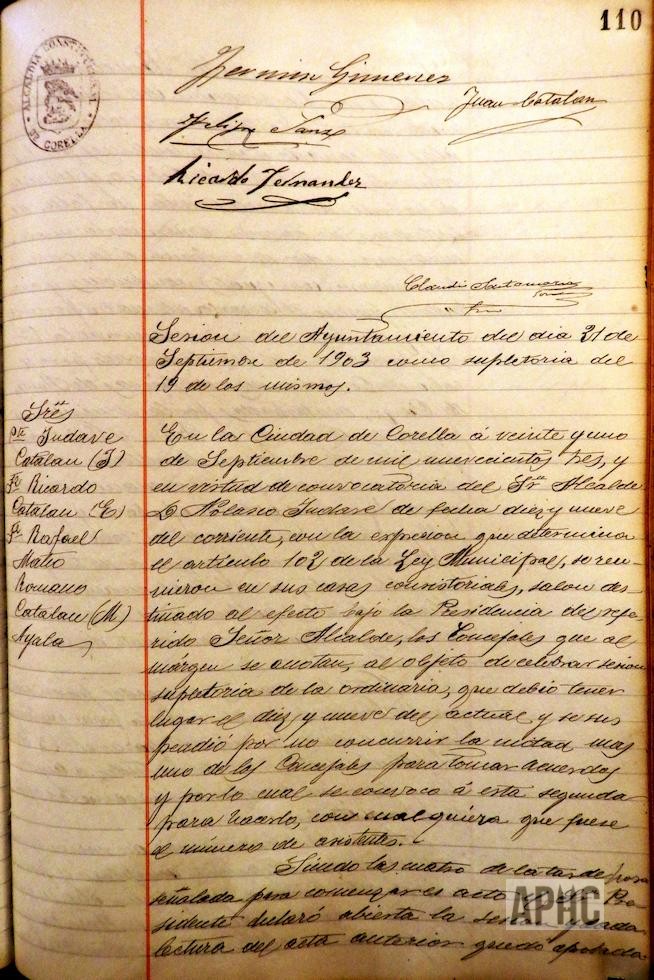 110
ALCALDIA CONSTITUCIONAL
DE CORELLA
Fermin Gimenez
Juan Catalan
Felipe Sanz
Ricardo Fernandez
Claudio
Sesion del Ayuntamiento del dia 21 de
Septiembre de 1903 como supletoria del
19 de los mismos.
Sres
Pte Indave
Catalan (J)
Fz Ricardo
Catalan (E)
Fz Rafael
Mateo
Romano
Catalan (M)
Ayala
En la Ciudad de Corella á veinte y uno
de Septiembre de mil nuevecientos tres, y
en virtud de convocatoria del Sr Alcalde
D Nolasco Indave de fecha diez y nueve
del corriente, con la expresion que determina
el artículo 102 de la Ley Municipal, se reu-
nieron en sus casas consistoriales, salon des-
tinado al efecto bajo la Presidencia del refe-
rido Señor Alcalde, los Concejales que al
márgen se anotan, al objeto de celebrar sesion
supletoria de la ordinaria, que debió tener
lugar el diez y nueve del actual y se sus
pendió por no concurrir la mitad mas
uno de los Concejales para tomar acuerdos
y por lo cual se convoco á esta segunda
para hacerlo, con cualquiera que fuese
el número de asistentes.
Siendo las cuatro de la tarde hora
señalada para comenzar el acto Pre
sidente declaró abierta la
lectura del acta anterior quedó aprobada
APHC